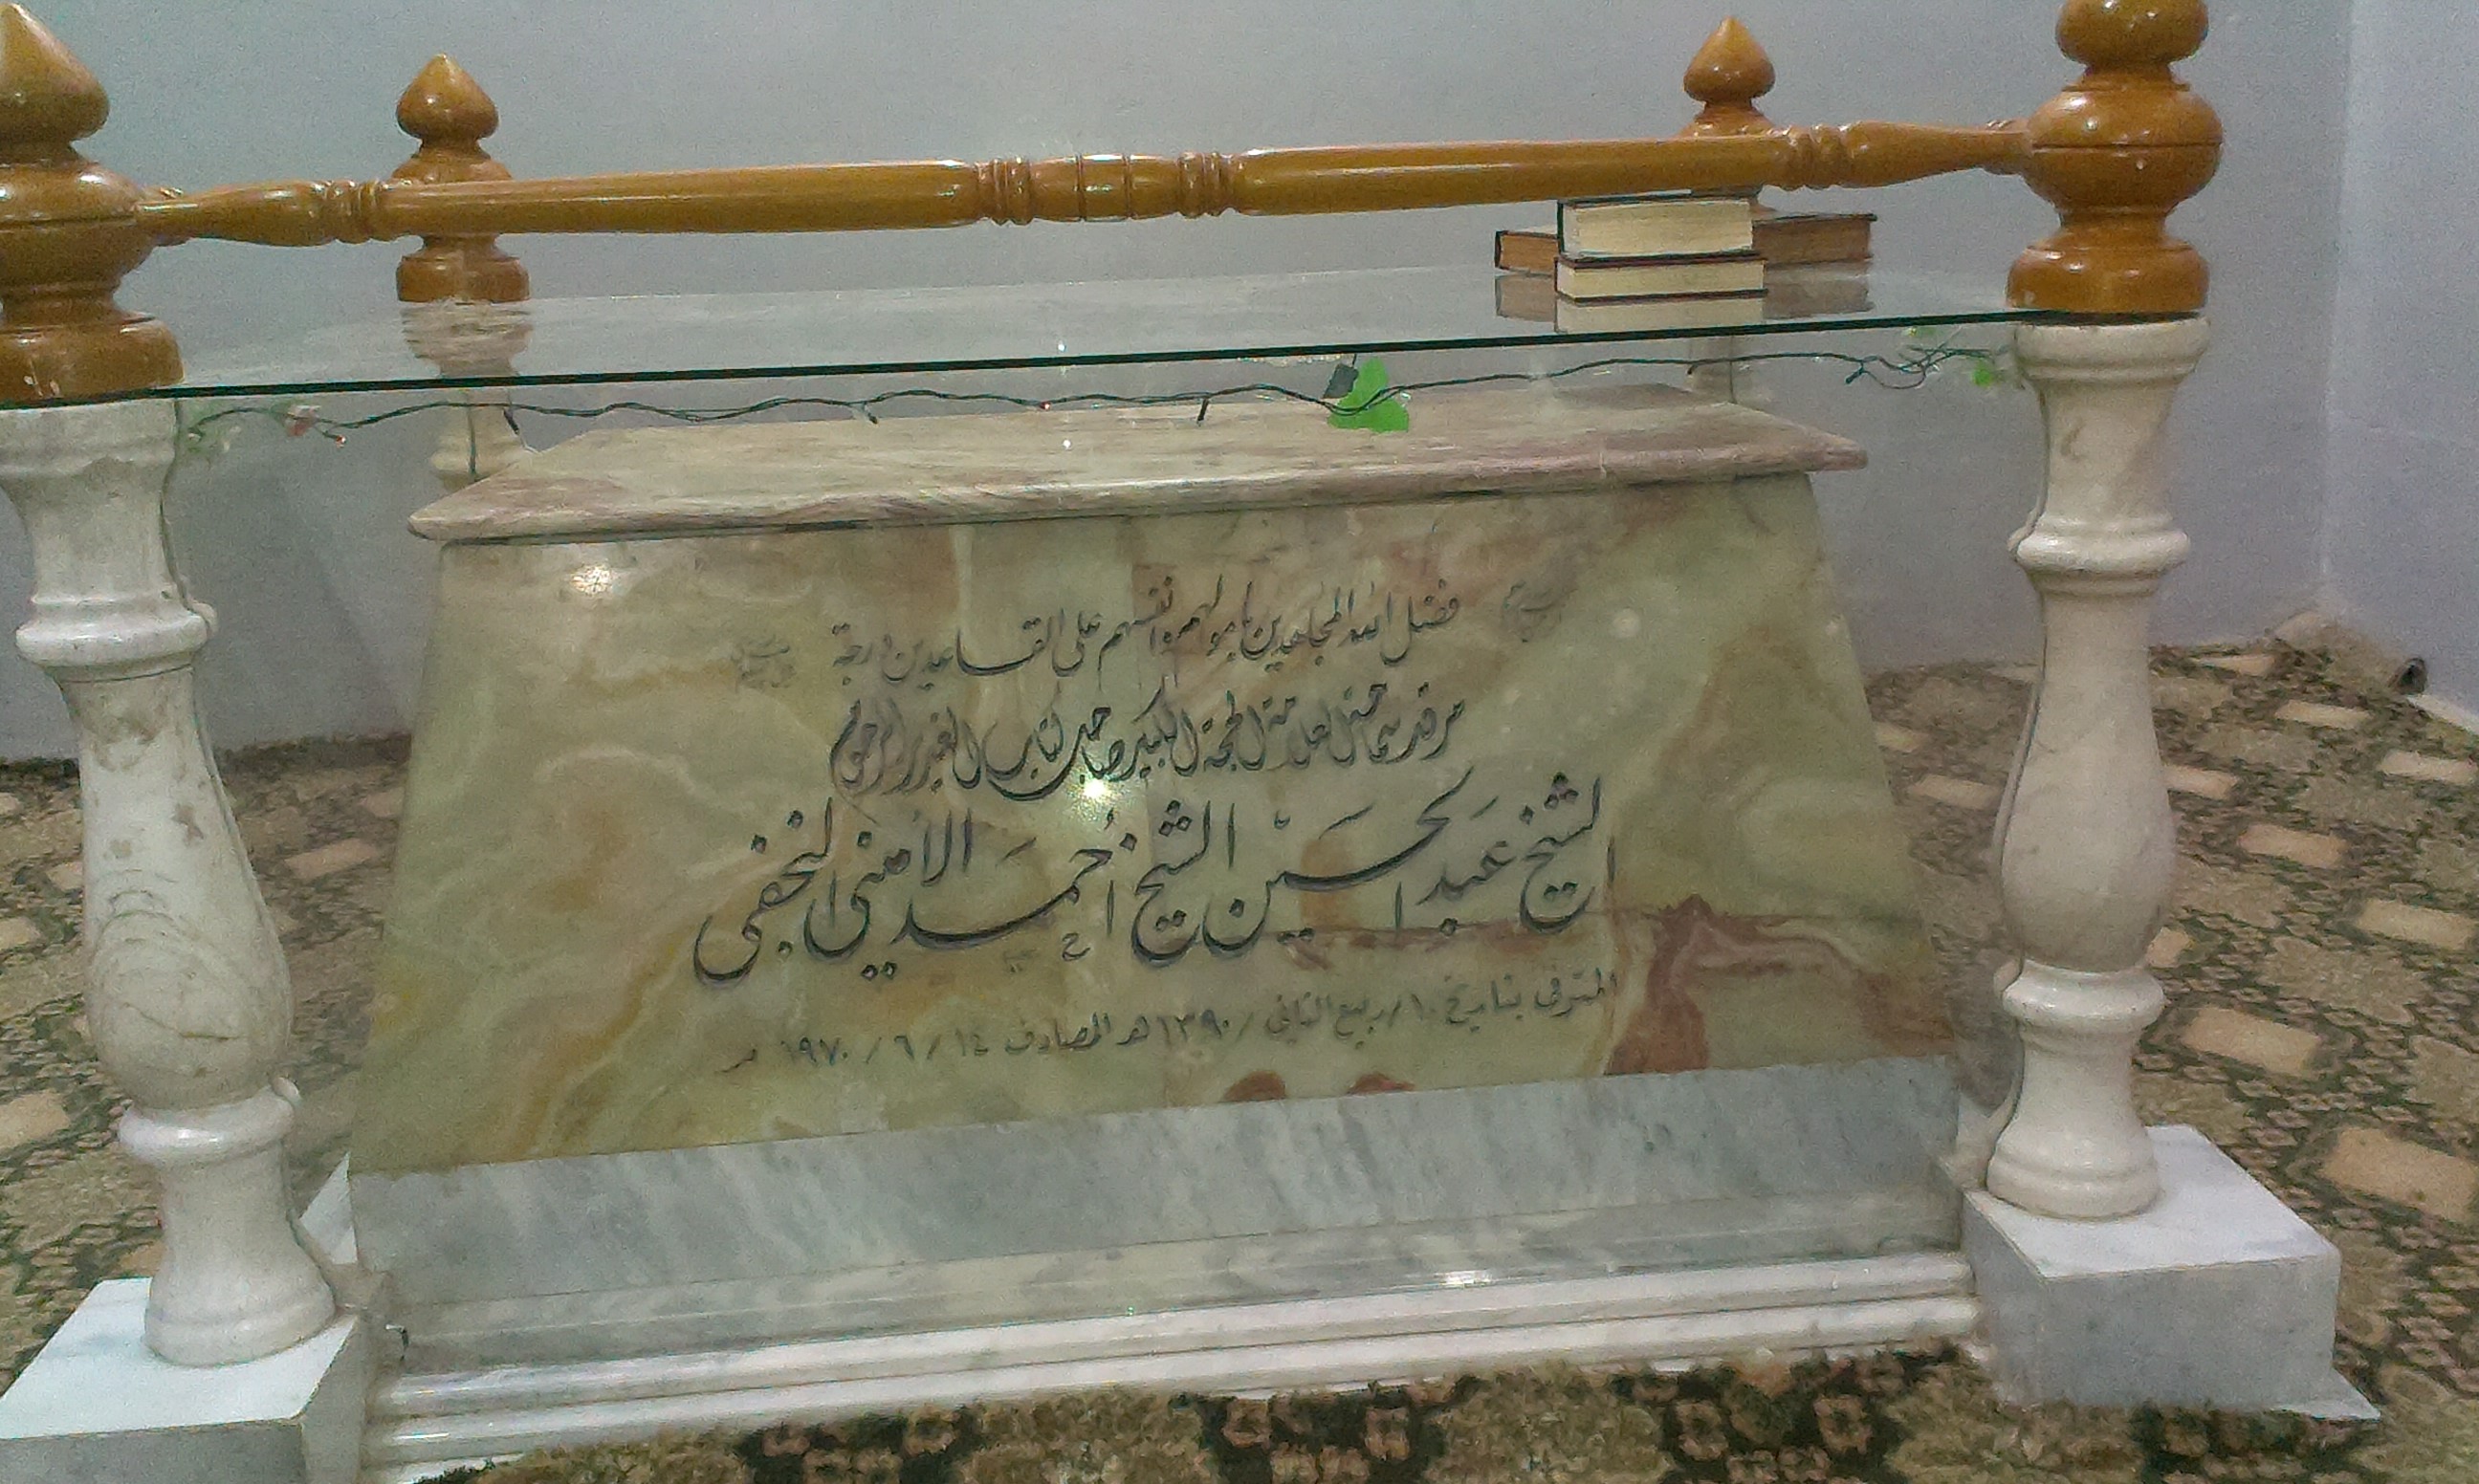 فضل الله المجاهدين بأموالهم وأنفسهم على القاعدين درجة
مرقد سماحة العلامة الحجة الكبير صاحب كتاب الغدير المرحوم
الشيخ عبد الحسين الشيخ أحمد الأميني النجفي
المتوفى بتاريخ ١٠/ربيع الثاني /١٣٩٠هـ المصادف ١٤ /٦ /١٩٧٠ م